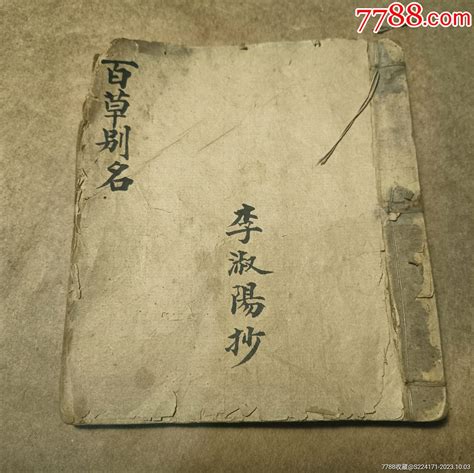 7788.com
百草别名
李淑陽抄
7788收藏@S224171-2023.10.03